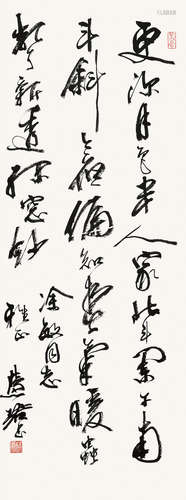 更深月色半人家北斗阑干南
斗斜今夜偏知春气暖虫
声新透绿窗纱
涂敏同志
雅正